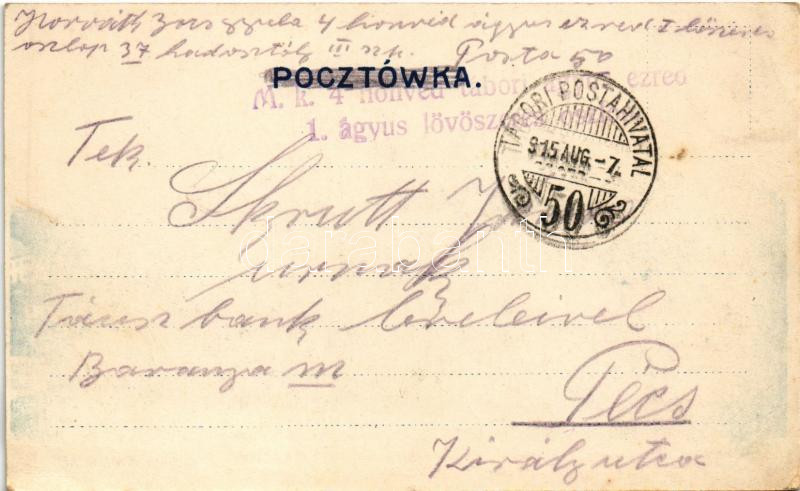 Horváth Gyula 4 honvéd ágyus ezred I lőszer
oszlop 37 hadosztály III szk. Posta 50
POCZTÓWKA.
M. k. 4 honvéd tábori ezred
1. ágyus lövőszer
TÁBORI POSTAHIVATAL
915 AUG. -7.
50
Tek.
Skrutt
urnak
bank
Baranya m
Pécs
Király utca
darabanth